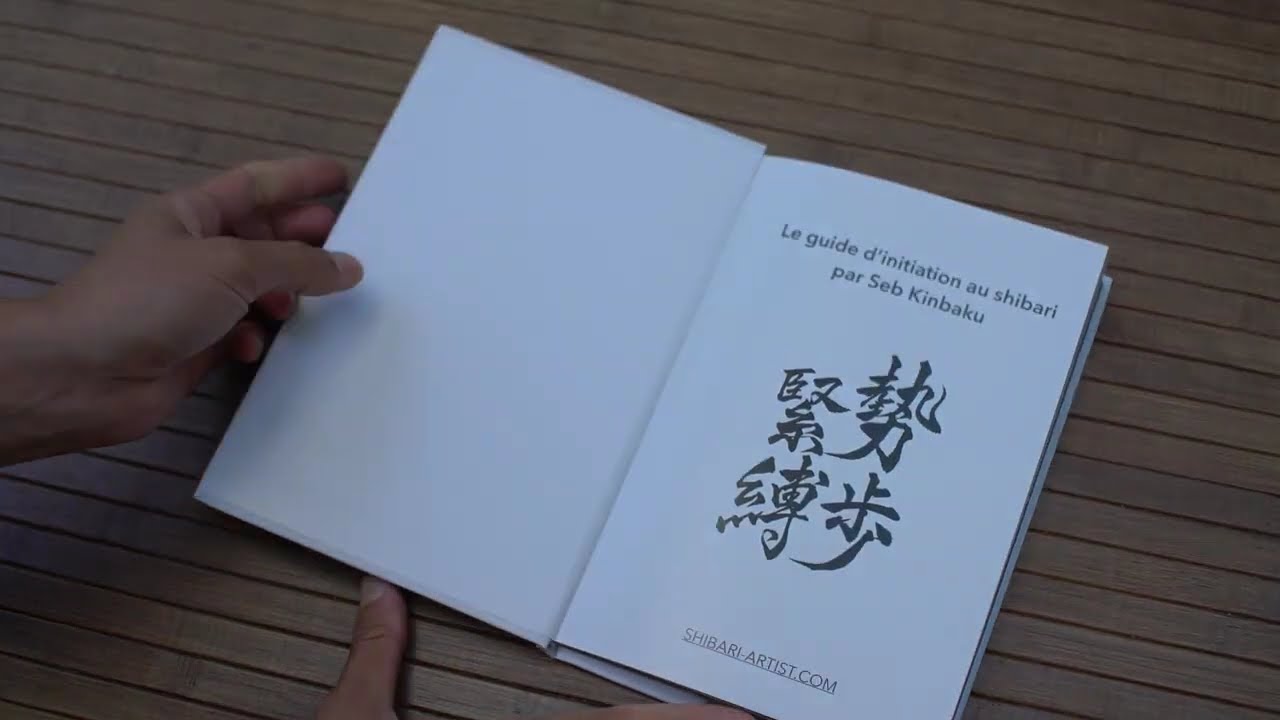 Le guide d'initiation au shibari
par Seb Kinbaku
勢歩
緊縛
SHIBARI-ARTIST.COM